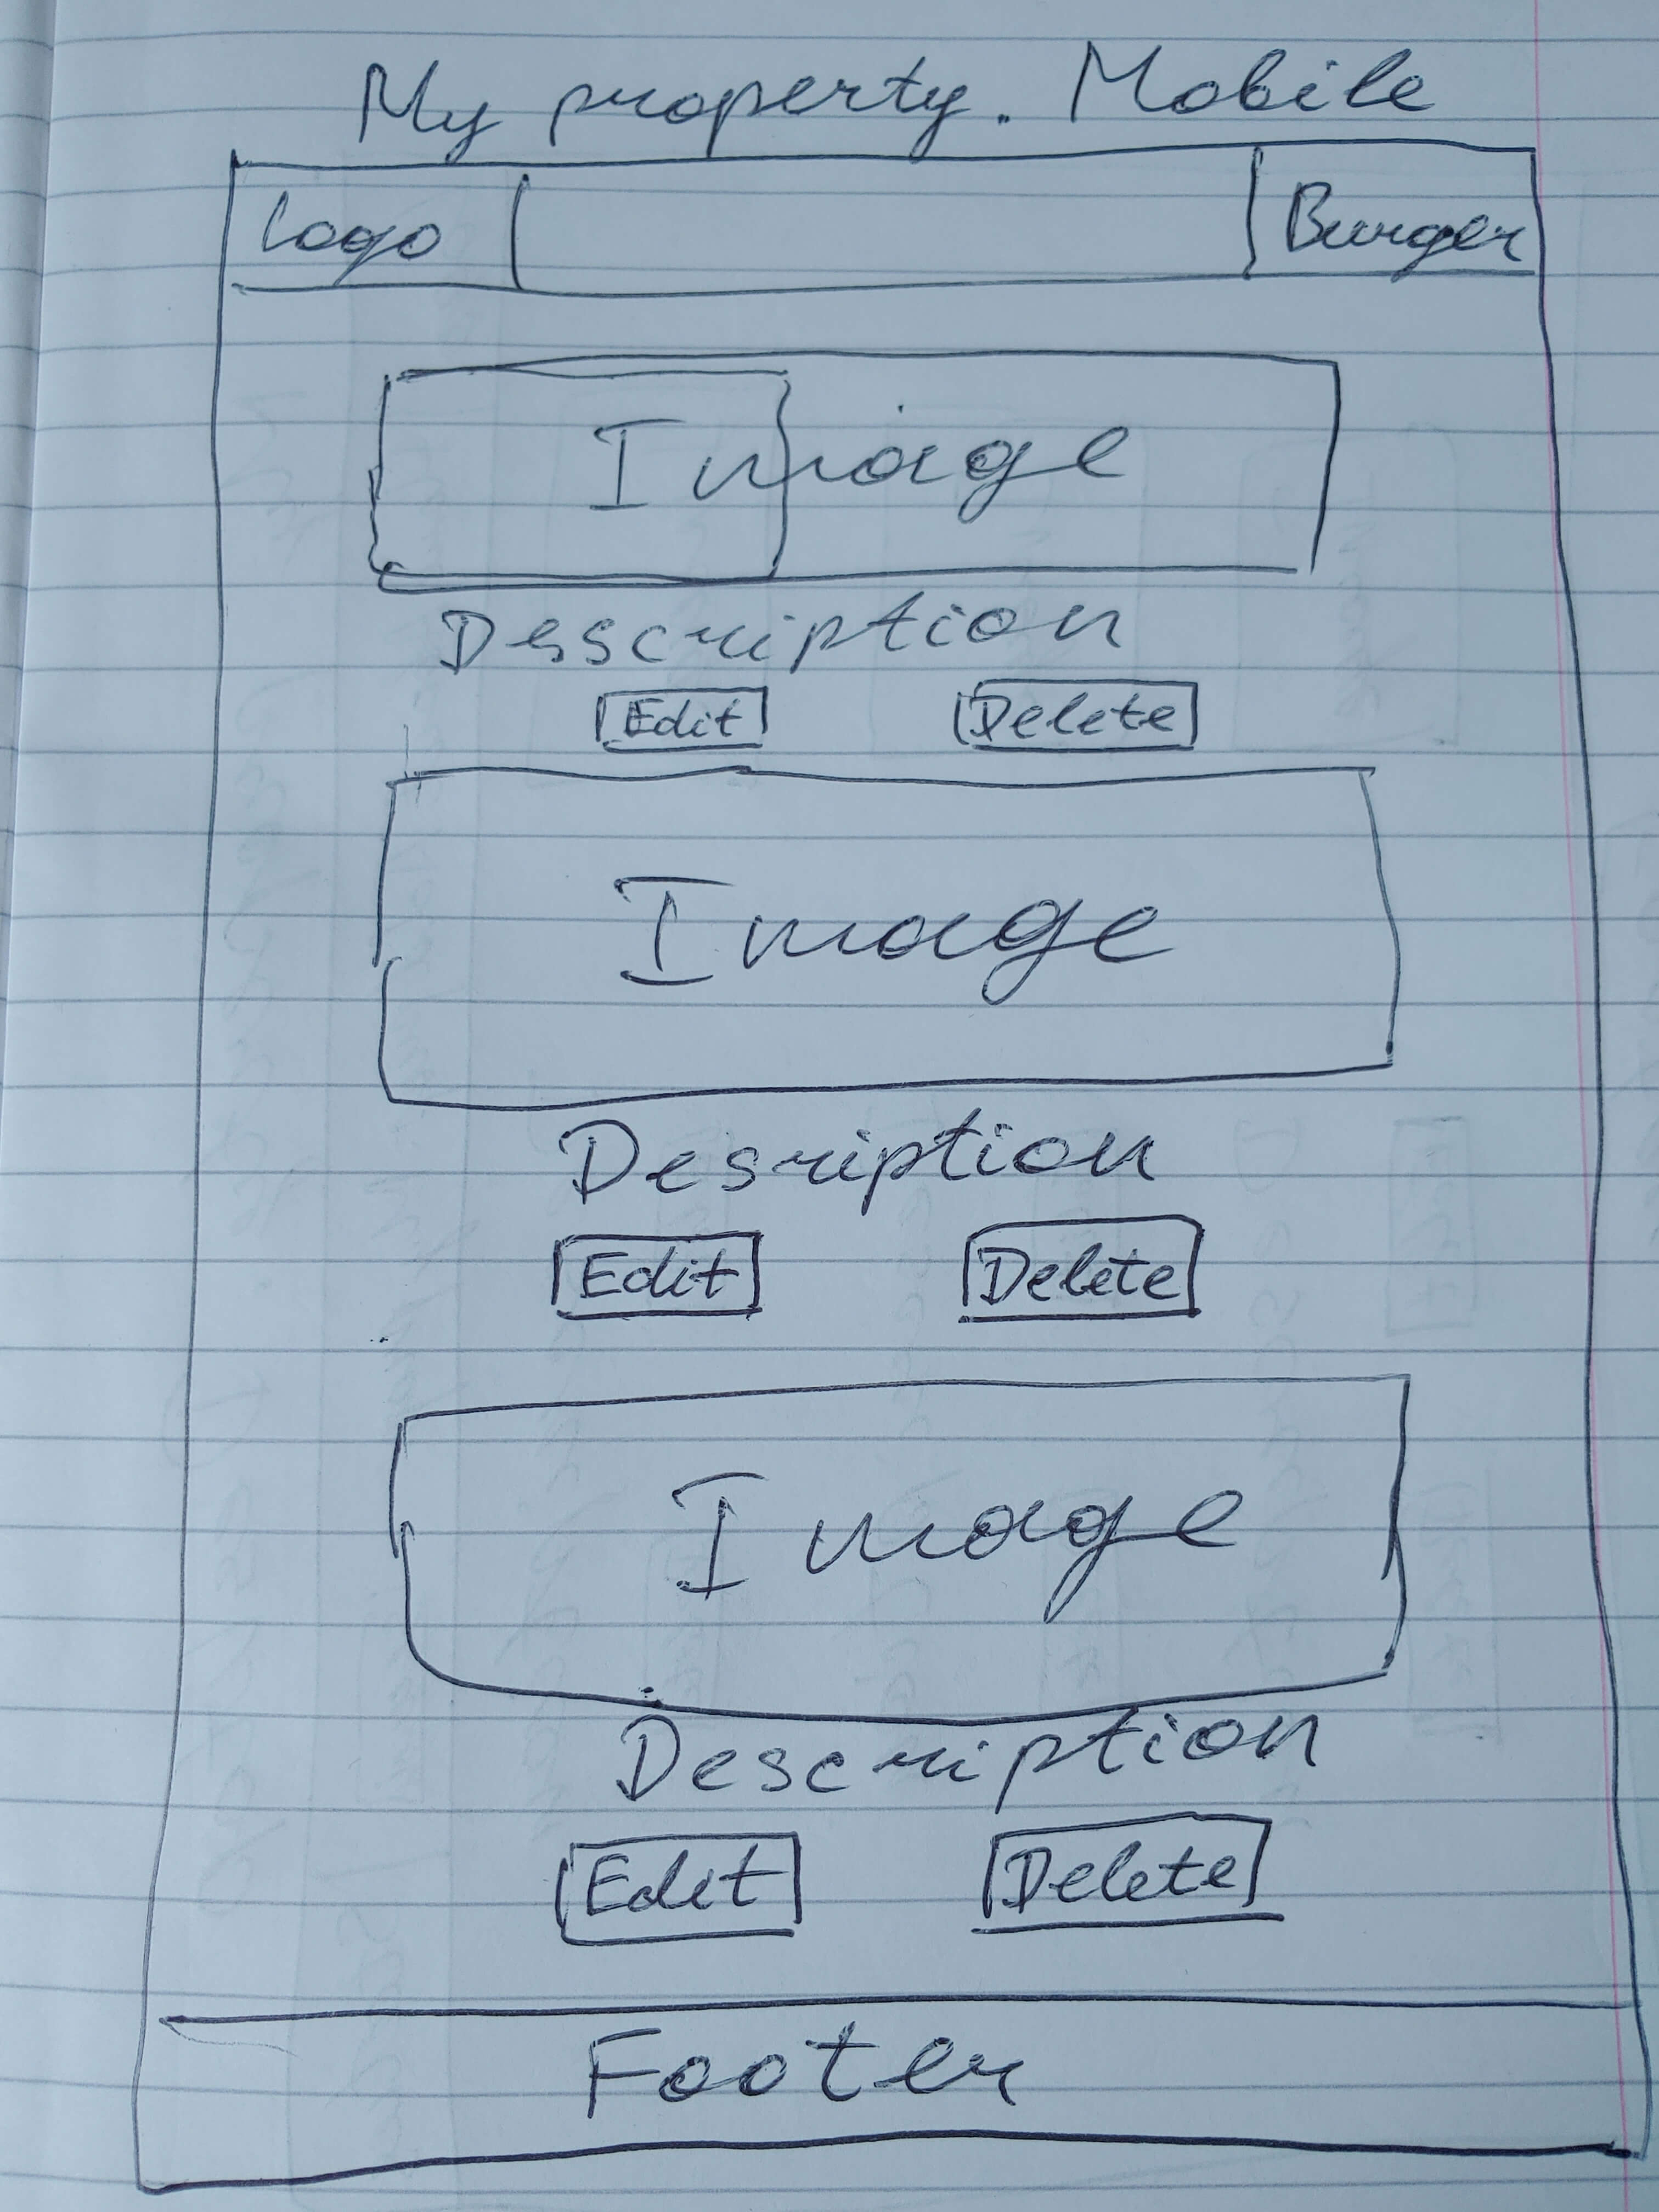 My property. Mobile
Logo Burger
Image
Desscription
Edit Delete
Image
Desription
Edit Delete
Image
Description
Edit Delete
Footer